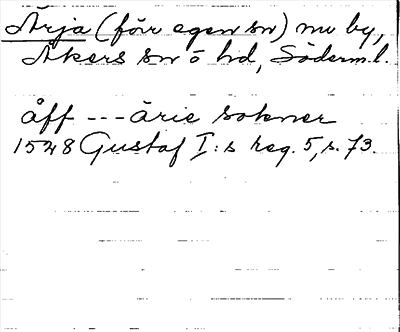 Ärja (förr egen sn) nu by,
Åkers sn o hd, Söderm.l.
åff --- ärie sokner
1528 Gustaf I:s reg. 5, s. 73.